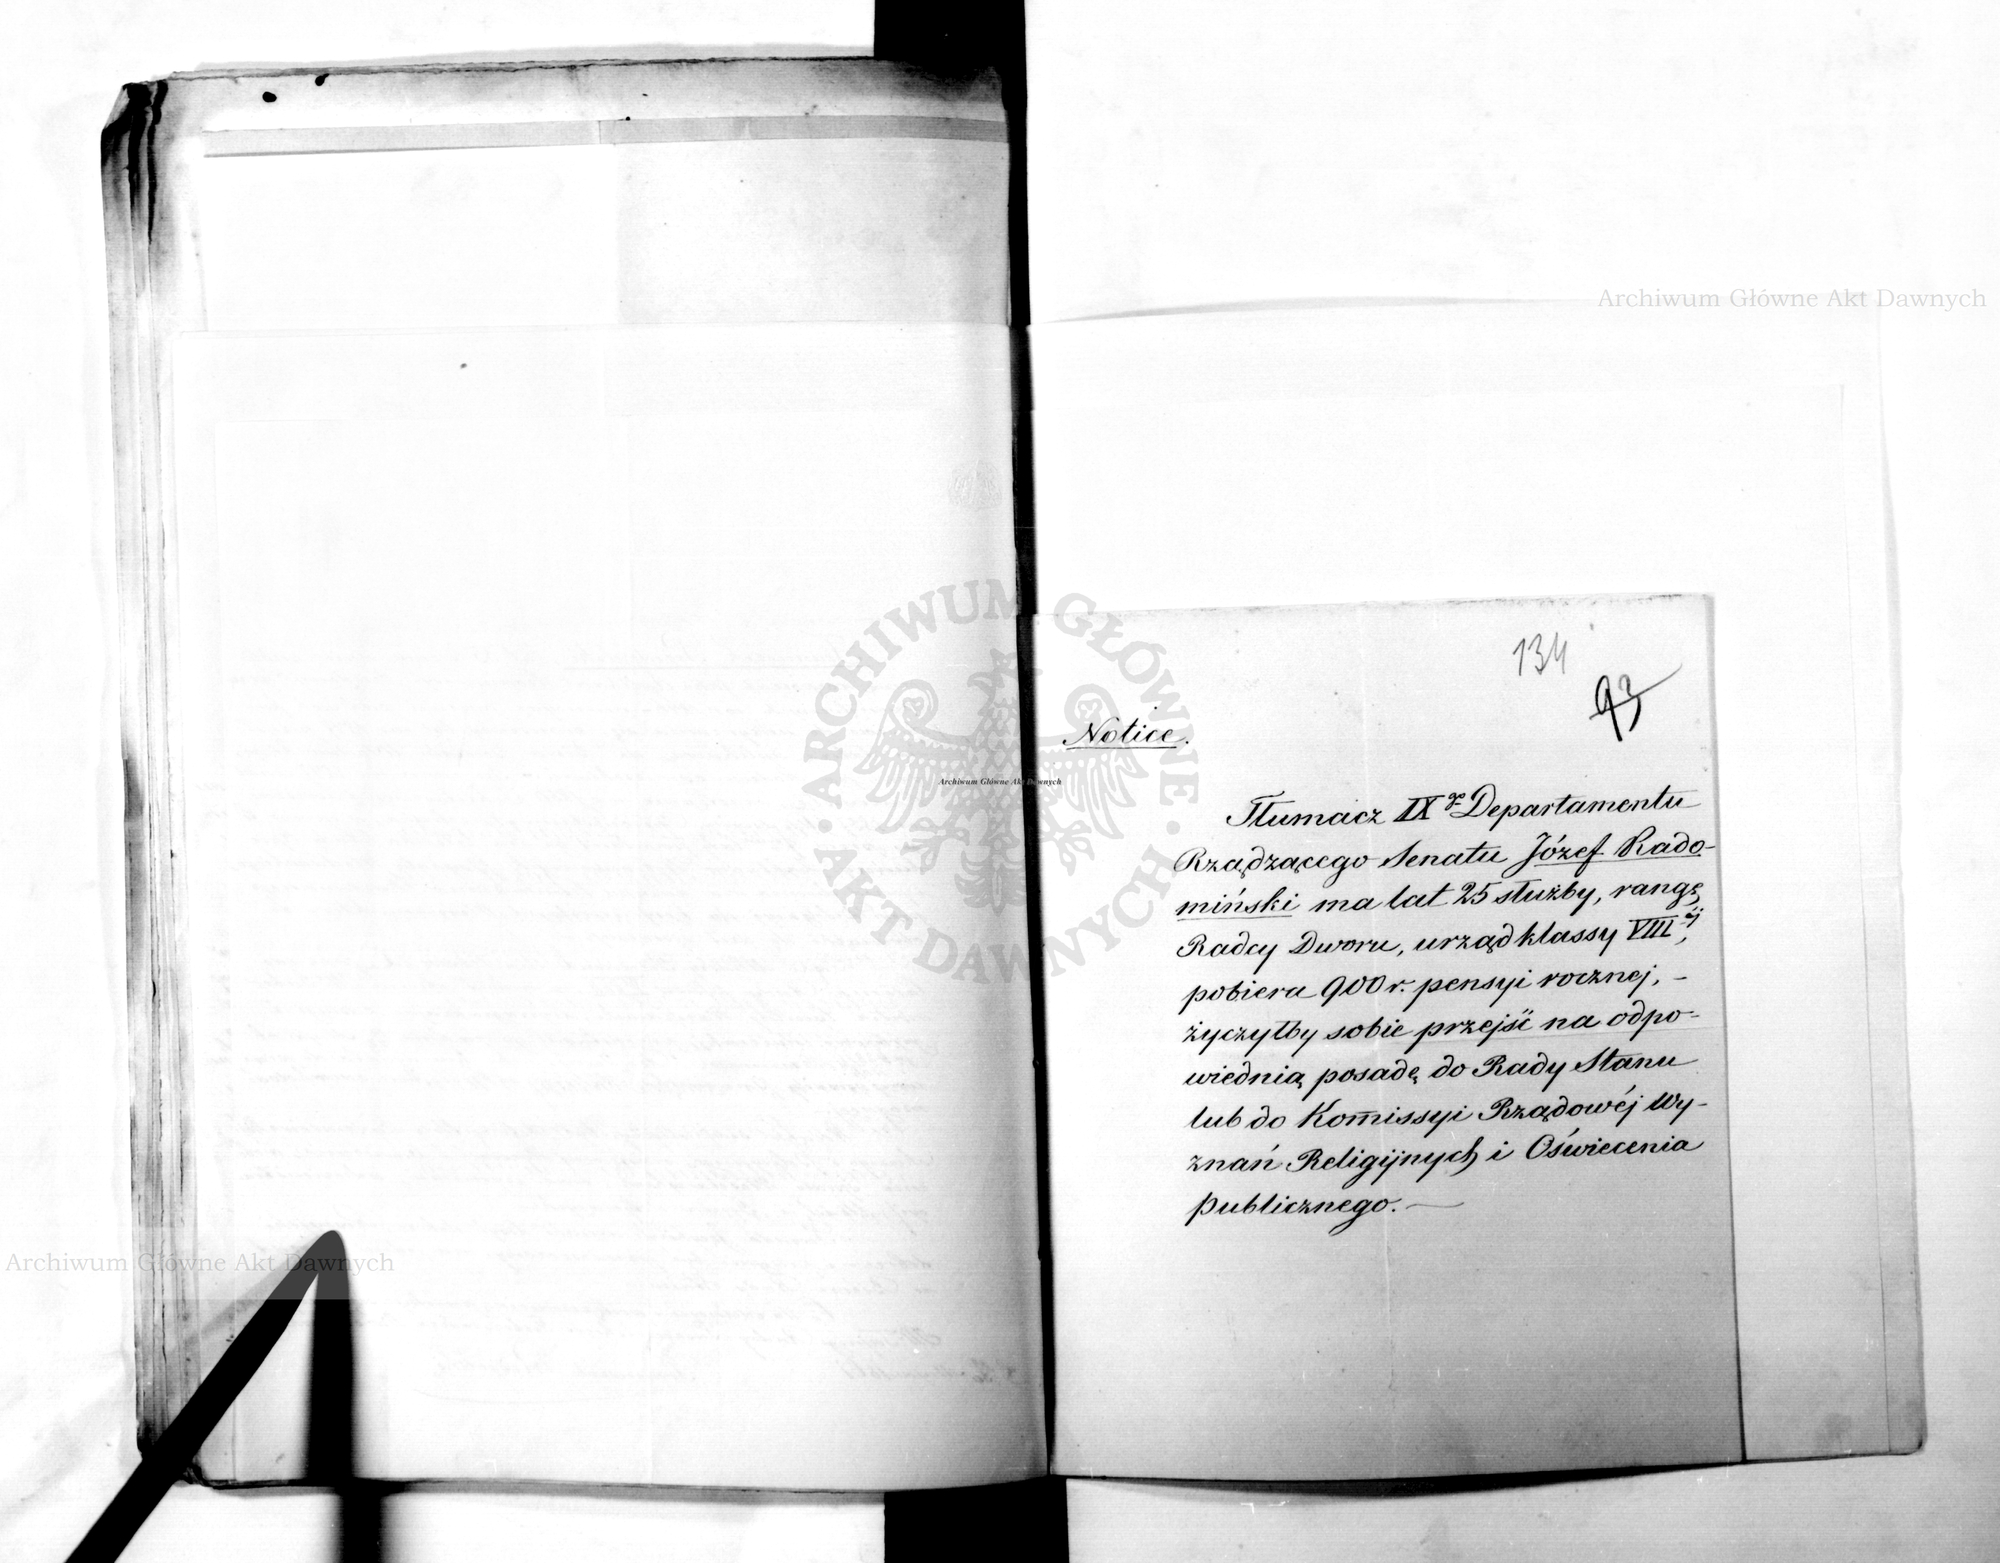 134
93
Notice.
Tłumacz IXgo Departamentu
Rządzącego Senatu Józef Rado-
miński ma lat 25 służby, rangę
Radcy Dworu, urząd klassy VIIIéj,
pobiera 900 r. pensyi rocznej, –
życzyłby sobie przejść na odpo-
wiednią posadę do Rady Stanu
lub do Kom̄issyi Rządowéj Wy-
znań Religijnych i Oświecenia
publicznego. —
Archiwum Główne Akt Dawnych
ARCHIWUM GŁÓWNE AKT DAWNYCH
Archiwum Główne Akt Dawnych
Archiwum Główne Akt Dawnych